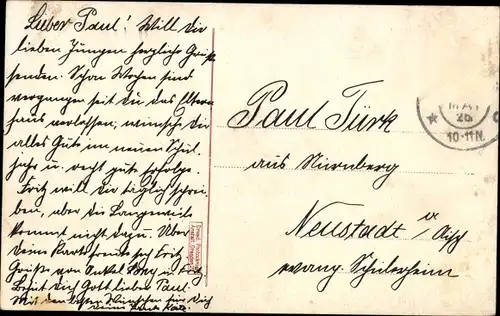 Lieber Paul! Will dir
lieben Jungen herzliche Grüße
senden. Schon Wochen sind
vergangen seit du das Eltern
haus verlassen; wünsche dir
alles Gute im neuen Schul-
jahr u. recht gute Erfolge.
Fritz will dir täglich schrei-
ben, aber die Langeweile
kommt nicht dazu. Über
Deine Karte freute sich Fritz
Grüße von Onkel und Fritz
Gott lieber Paul
Mit den besten Wünschen für Dich
deine Tante
Paul Türk
aus Nürnberg
Neustadt a/ Aisch
evang. Schülerheim
MAI
26
10-11N.